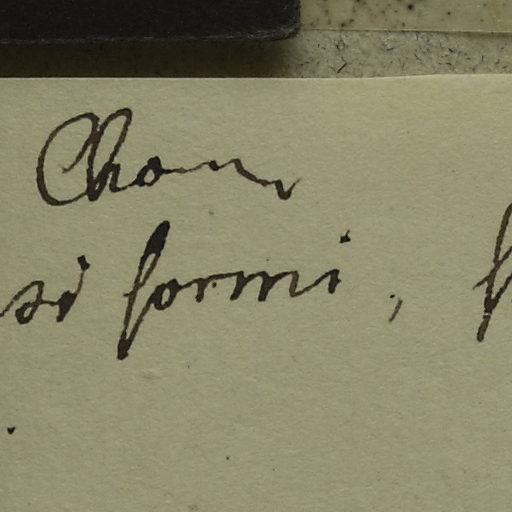 Cham
si formi,